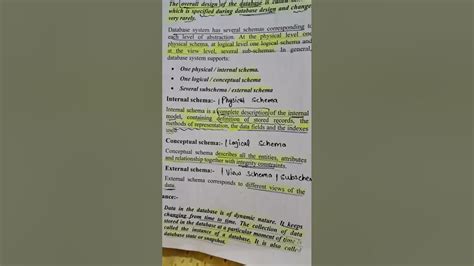 The overall design of the database is called
which is specified during database design and change
very rarely.
Database system has several schemas corresponding to
each level of abstraction. At the physical level one
physical schema, at logical level one logical schema and
at the view level, several sub-schemas. In general,
database system supports:
• One physical / internal schema.
• One logical / conceptual schema
• Several subschema / external schema
Internal schema:- | Physical Schema
Internal schema is a complete description of the internal
model, containing definition of stored records, the
methods of representation, the data fields and the indexes
used.
Conceptual schema:- | Logical Schema
Conceptual schema describes all the entities, attributes
and relationship together with integrity constraints.
External schema:- | View Schema | Subschem
External schema corresponds to different views of the
data.
ance:-
Data in the database is of dynamic nature. It keeps
changing from time to time. The collection of data
stored in the database at a particular moment of time is
called the instance of a database. It is also calle
database state or snapshot.